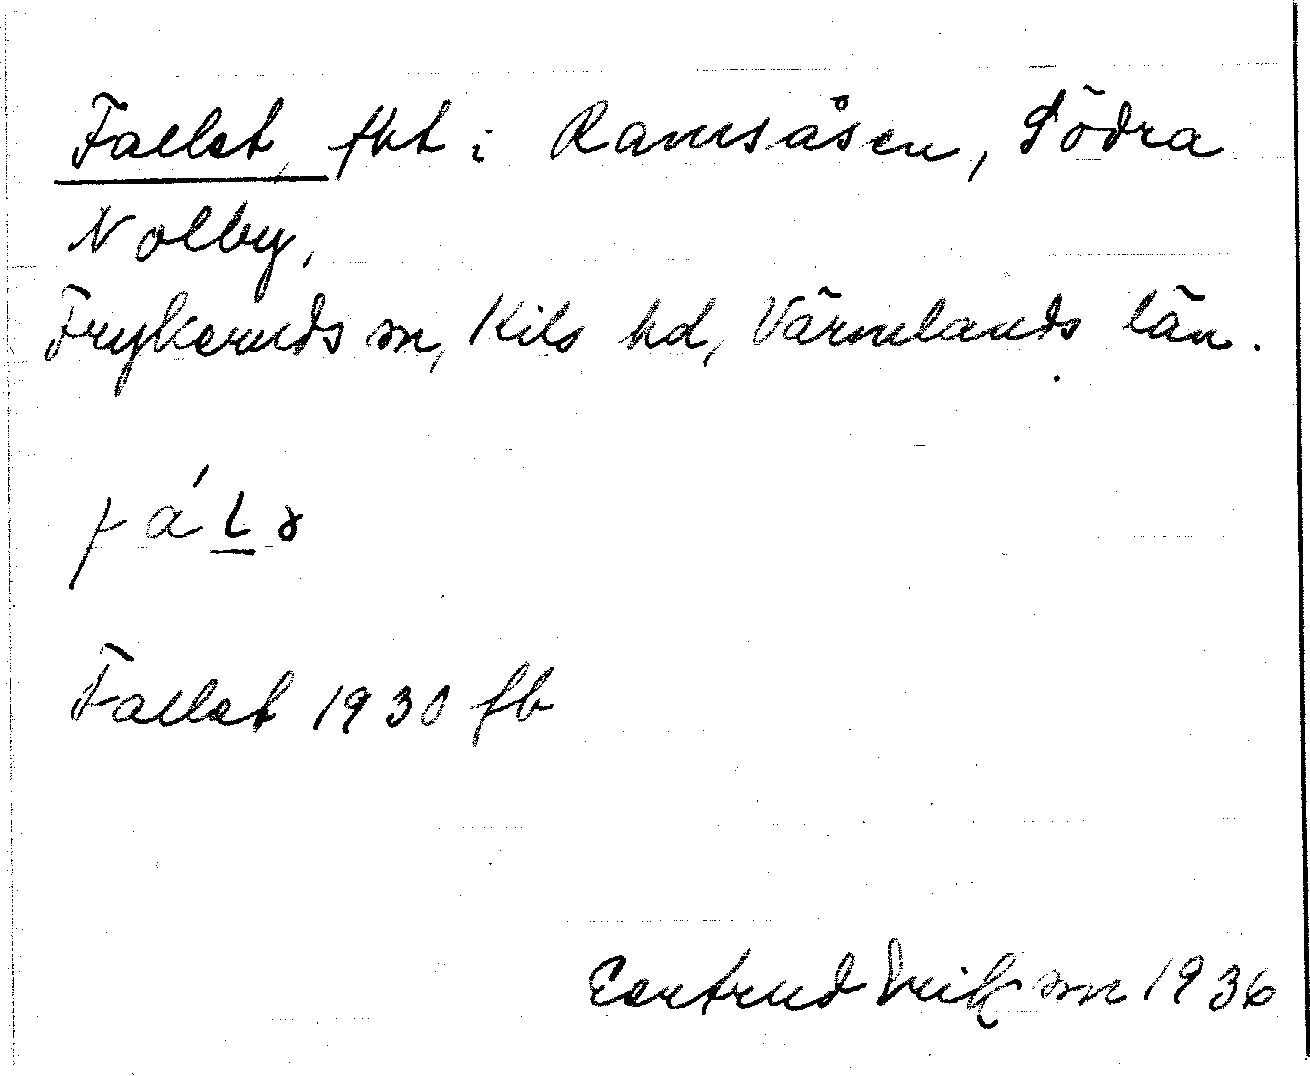 Fallet, fkt i Ramsåsen, Södra
Nolby,
Frykeruds sn, Kils hd, Värmlands län.
Fallet 1930 fb
Gertrud Erikson 1936